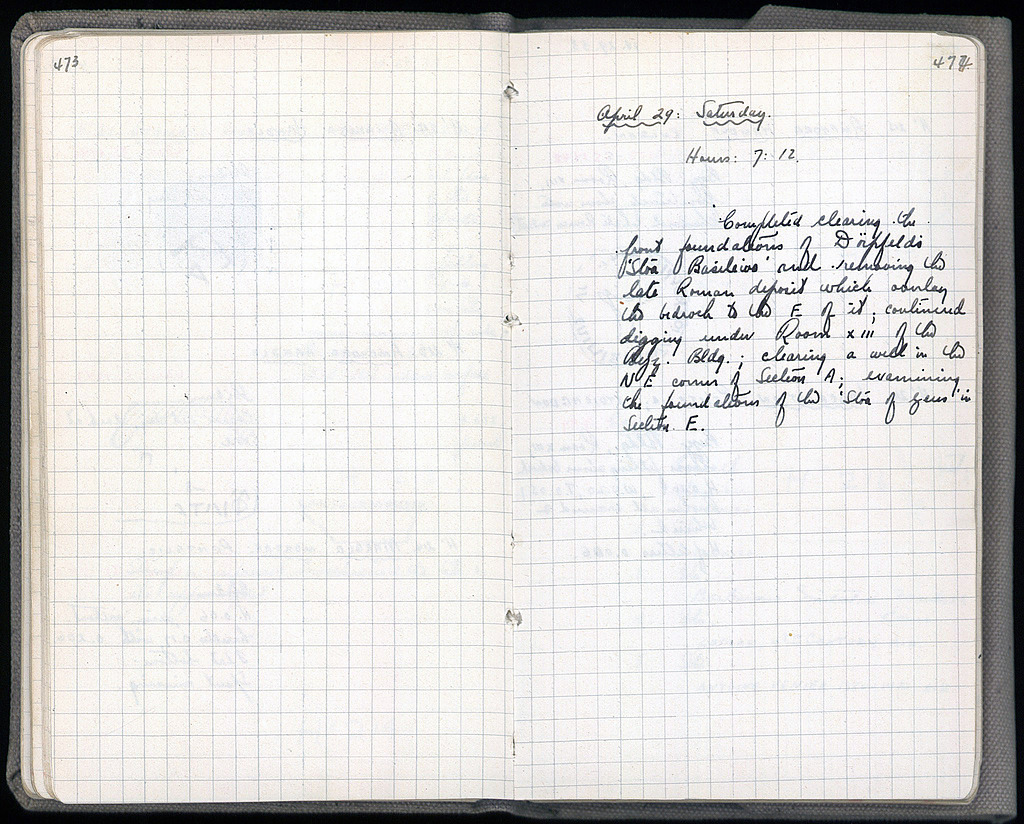 473
474
April 29: Saturday.
Hours: 7: 12.
Completed clearing the
front foundations of Dörpfeld's
'Stoa Basileios' and removing the
late Roman deposit which overlay
the bedrock to the E of it; continued
digging under Room XIII of the
Byz. Bldg.; clearing a well in the
NE corner of Section A; examining
the foundations of the 'Stoa of Zeus' in
Section E.